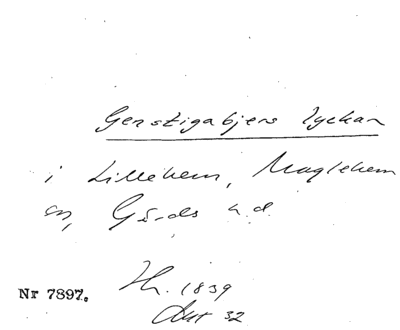 Gerstigabjers lyckan
i Lillehem, Maglehem
sn, Gärds hd.
Nr 7897. 1839
Akt 32